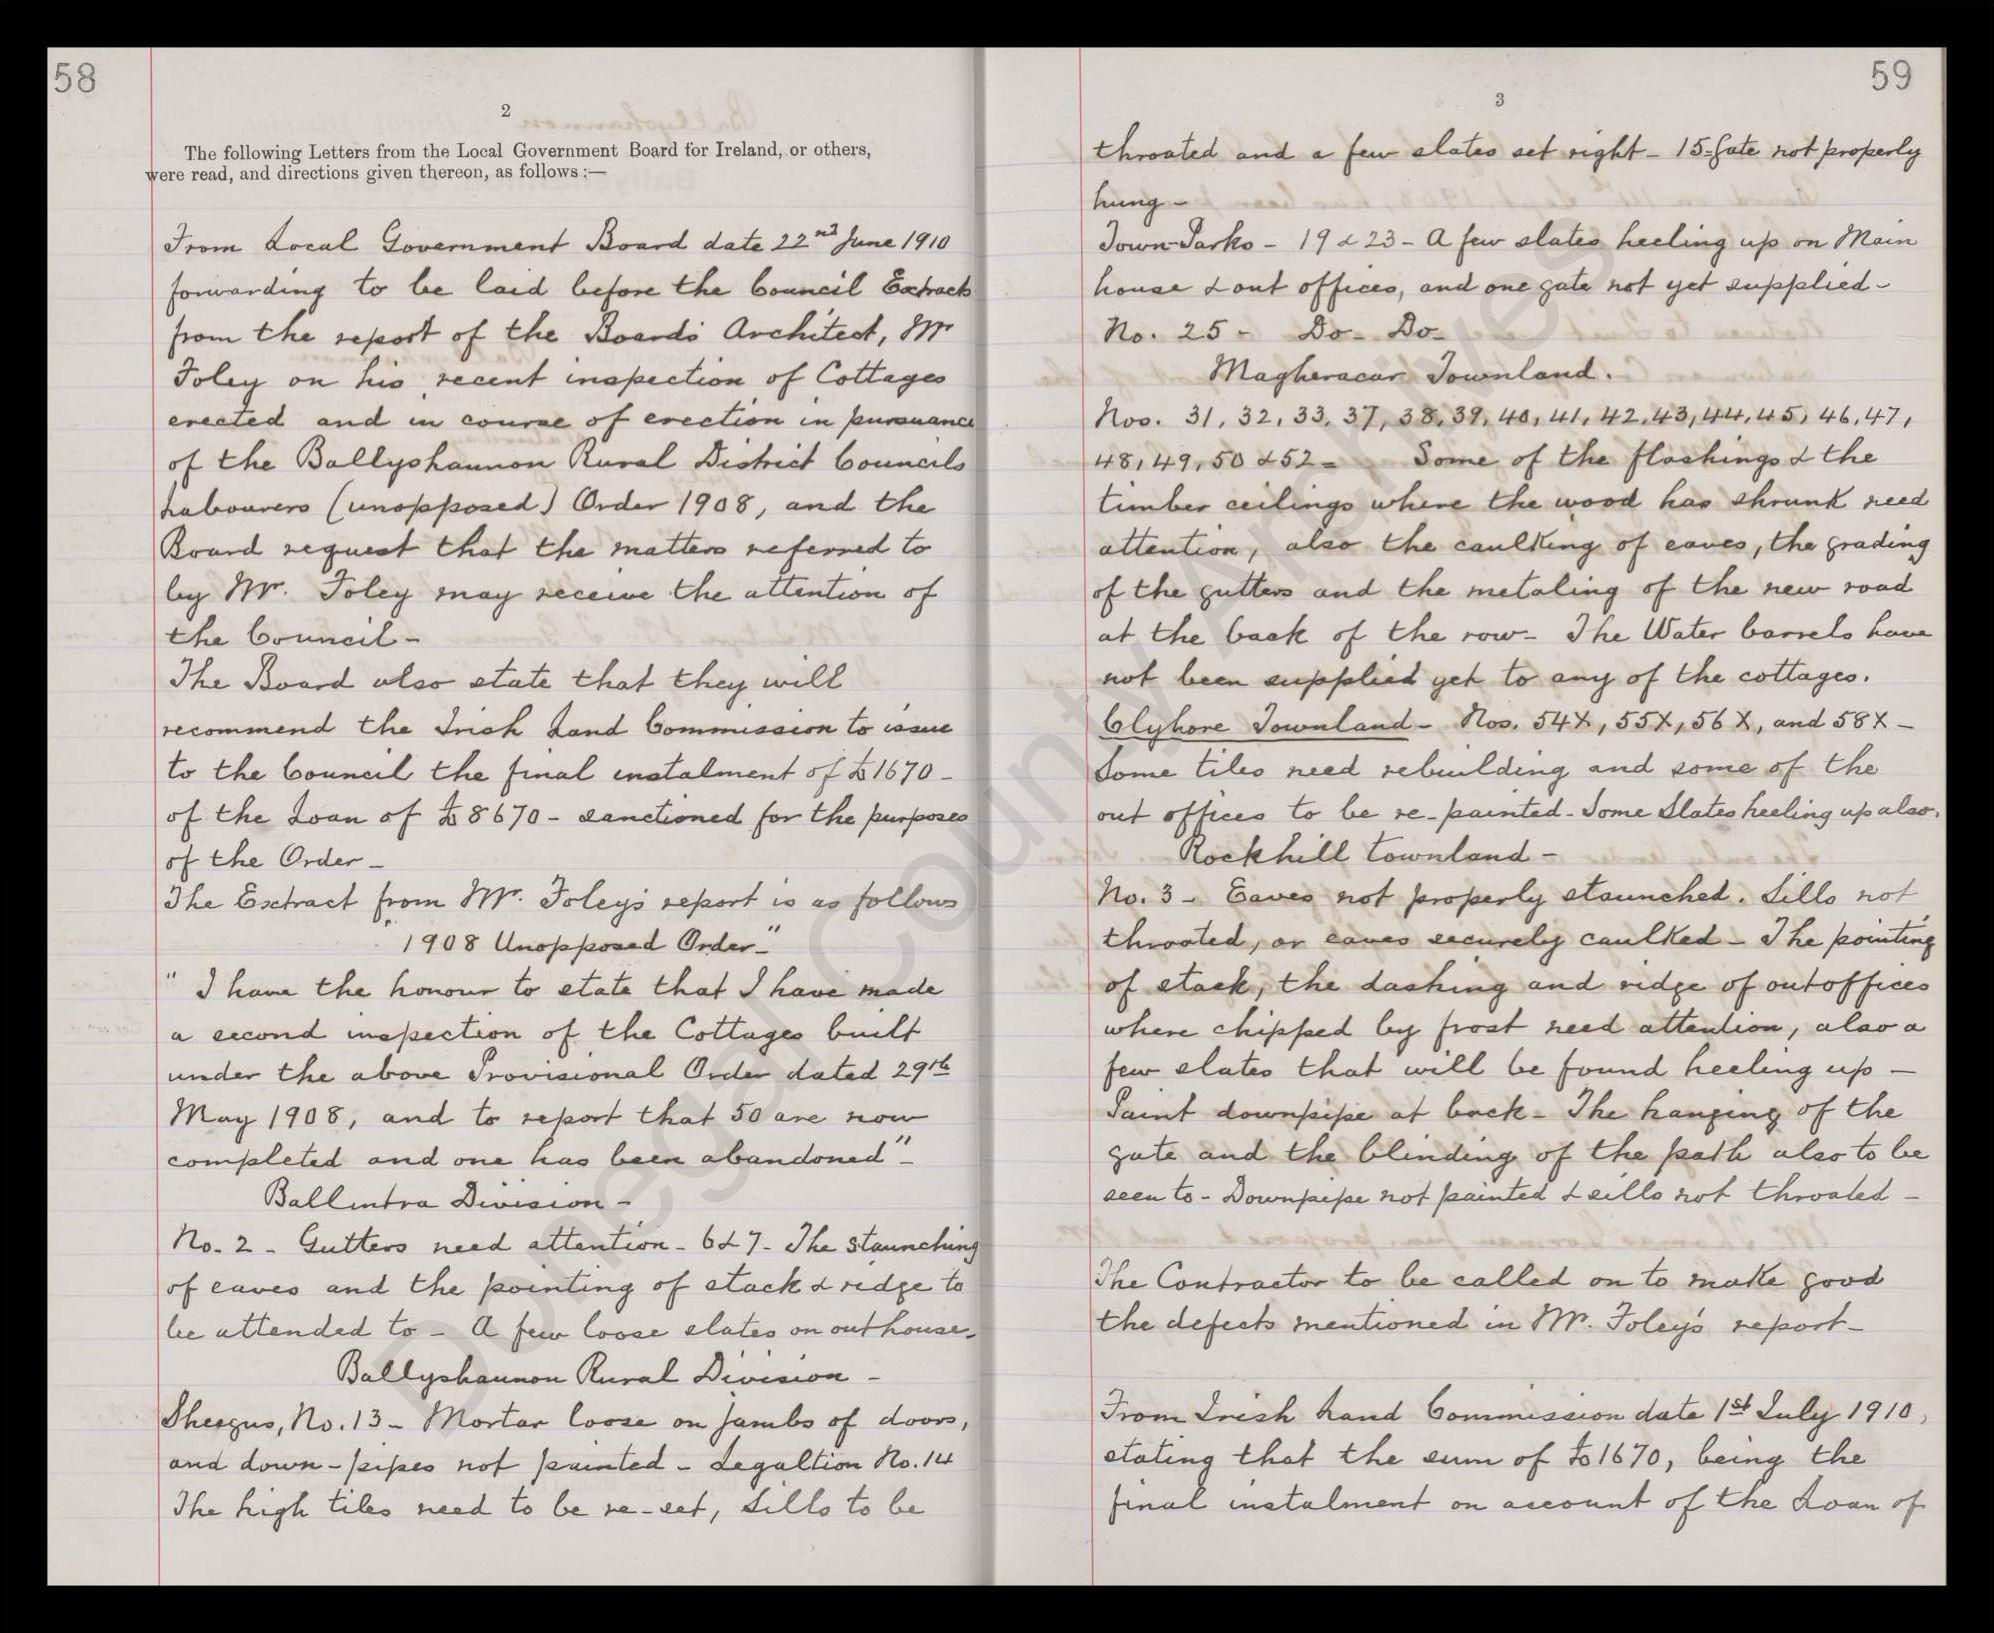 58
2
The following Letters from the Local Government Board for Ireland, or others,
were read, and directions given thereon, as follows :—
From Local Government Board date 22nd June 1910
forwarding to be laid before the Council Extract
from the report of the Boards Architect, Mr
Foley on his recent inspection of Cottages
erected and in course of erection in pursuance
of the Ballyshannon Rural District Councils
Labourers (unopposed) Order 1908, and the
Board request that the matters referred to
by Mr. Foley may receive the attention of
the Council -
The Board also state that they will
recommend the Irish Land Commission to issue
to the Council the final instalment of £1670 -
of the Loan of £8670 - sanctioned for the purposes
of the Order -
The Extract from Mr. Foley's report is as follows
"1908 Unopposed Order -"
" I have the honour to state that I have made
a second inspection of the Cottages built
under the above Provisional Order dated 29th
May 1908, and to report that 50 are now
completed and one has been abandoned" -
Ballintra Division -
No. 2 - Gutters need attention - 6 & 7 - The staunching
of eaves and the pointing of stack & ridge to
be attended to - A few loose slates on outhouse -
Ballyshannon Rural Division -
Sheegus, No. 13 - Mortar loose on jambs of doors,
and down-pipes not painted - Legaltion No. 14
The high tiles need to be re-set, Sills to be
59
3
throated and a few slates set right - 15 - Gate not properly
hung -
Town-Parks - 19 & 23 - A few slates heeling up on Main
house & out offices, and one gate not yet supplied -
No. 25 - Do - Do -
Magheracar Townland.
Nos. 31, 32, 33, 37, 38, 39, 40, 41, 42, 43, 44, 45, 46, 47,
48, 49, 50 & 52 - Some of the flashings & the
timber ceilings where the wood has shrunk need
attention, also the caulking of eaves, the grading
of the gutters and the metaling of the new road
at the back of the row - The Water barrels have
not been supplied yet to any of the cottages.
Clyhore Townland - Nos. 54X, 55X, 56X, and 58X -
Some tiles need rebuilding and some of the
out offices to be re-painted - Some Slates heeling up also.
Rockhill townland -
No. 3 - Eaves not properly staunched. Sills not
throated, or eaves securely caulked - The pointing
of stack, the dashing and ridge of outoffices
where chipped by frost need attention, also a
few slates that will be found heeling up -
Paint downpipe at back - The hanging of the
gate and the blinding of the path also to be
seen to - Downpipe not painted & sills not throated -
The Contractor to be called on to make good
the defects mentioned in Mr. Foley's report -
From Irish Land Commission date 1st July 1910,
stating that the sum of £1670, being the
final instalment on account of the Loan of
Donegal County Archives